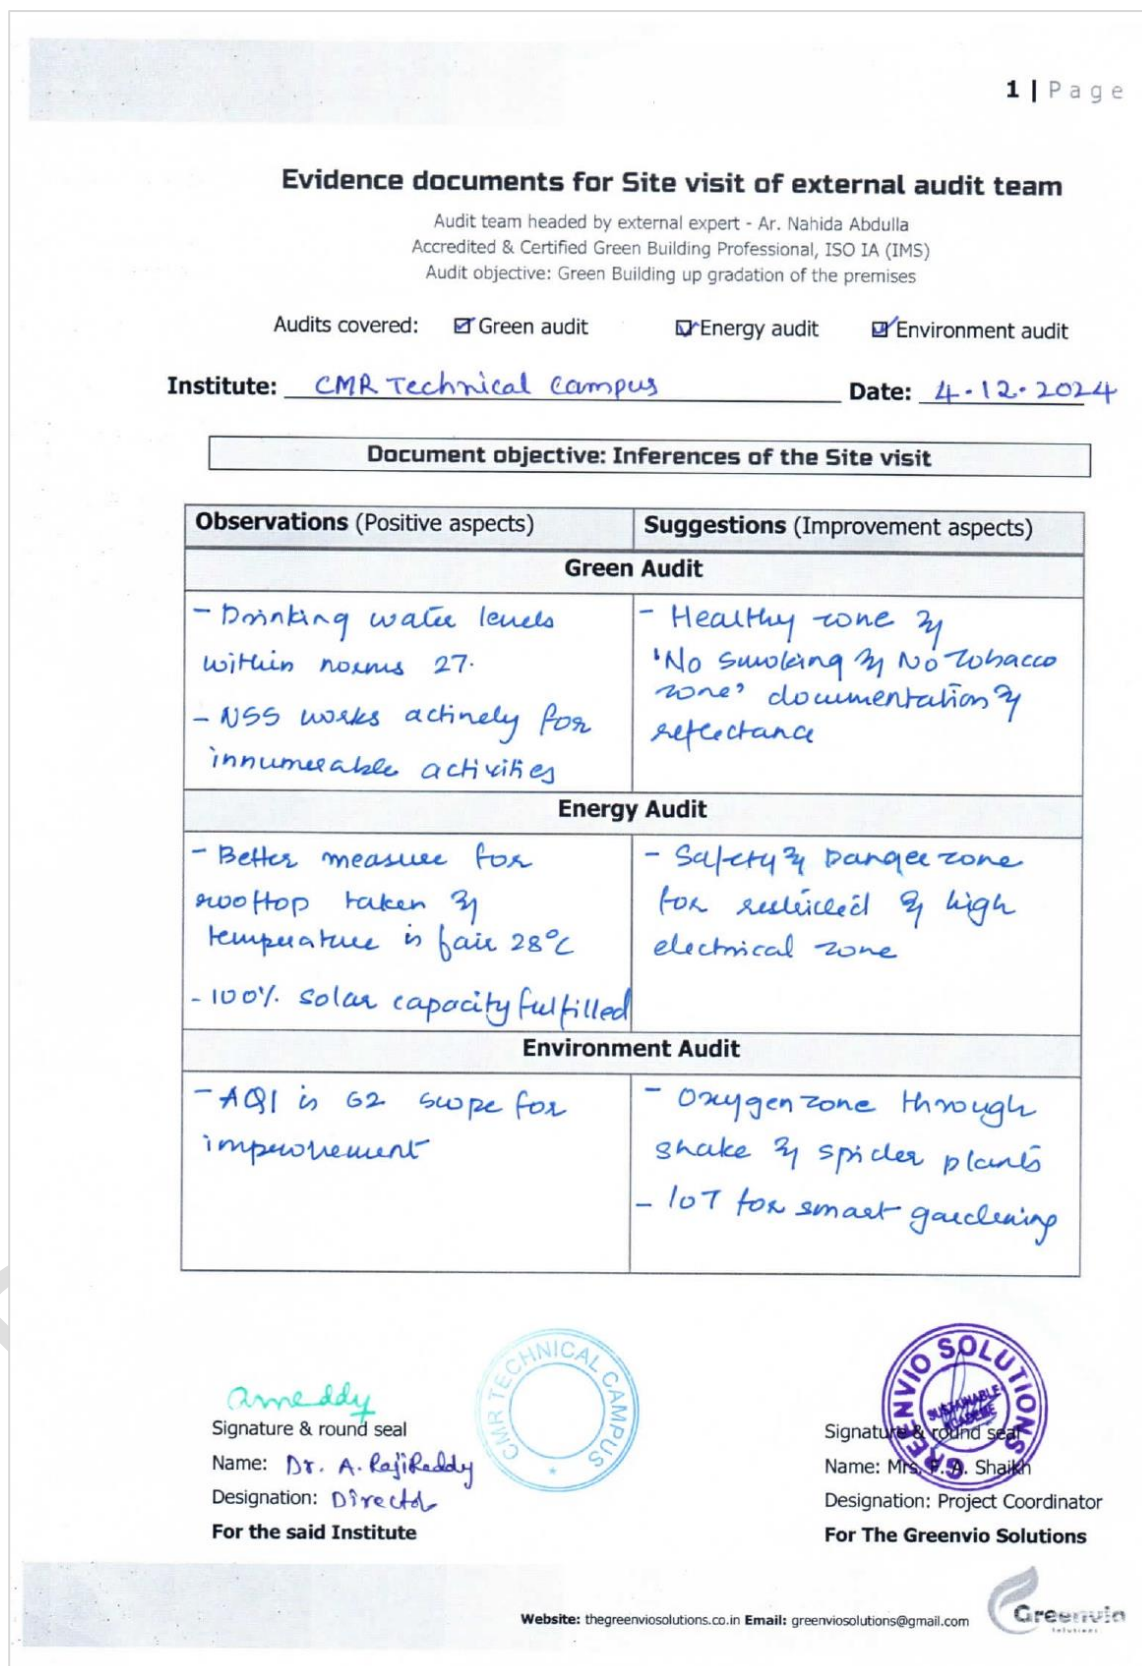 1 | Page
Evidence documents for Site visit of external audit team
Audit team headed by external expert - Ar. Nahida Abdulla
Accredited & Certified Green Building Professional, ISO IA (IMS)
Audit objective: Green Building up gradation of the premises
Audits covered: ☑ Green audit ☑ Energy audit ☑ Environment audit
Institute: CMR Technical Campus Date: 4-12-2024
Document objective: Inferences of the Site visit
Observations (Positive aspects) Suggestions (Improvement aspects)
Green Audit
- Drinking water levels
within norms 27.
- NSS works actively for
innumerable activities
- Healthy zone &
'No Smoking & No Tobacco
zone' documentation &
reflectance
Energy Audit
- Better measure for
rooftop taken &
temperature is fair 28°C
- 100% solar capacity fulfilled
- Safety & Danger zone
for restricted & high
electrical zone
Environment Audit
- AQI is 62 scope for
improvement
- Oxygen zone through
snake & spider plants
- IoT for smart gardening
CMR TECHNICAL CAMPUS
Signature & round seal
Name: Dr. A. Raji Reddy
Designation: Director
For the said Institute
GREENVIO SOLUTIONS
SUSTAINABLE
ACADEME
Signature & round seal
Name: Mrs. F. A. Shaikh
Designation: Project Coordinator
For The Greenvio Solutions
Website: thegreenviosolutions.co.in Email: greenviosolutions@gmail.com
Greenvio
Solutions